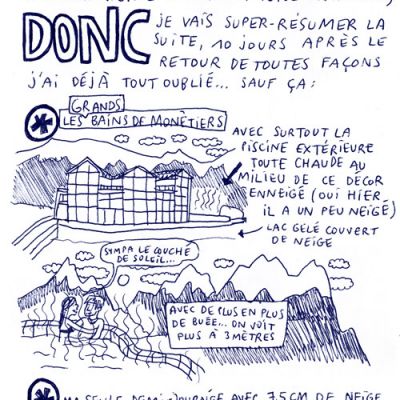 DONC JE VAIS SUPER-RÉSUMER LA
SUITE, 10 JOURS APRÈS LE
RETOUR DE TOUTES FAÇONS
J'AI DÉJÀ TOUT OUBLIÉ... SAUF ÇA:
GRANDS
LES BAINS DE MONÊTIERS
AVEC SURTOUT LA
PISCINE EXTÉRIEURE
TOUTE CHAUDE AU
MILIEU DE CE DÉCOR
ENNEIGÉ (OUI HIER
IL A UN PEU NEIGÉ)
LAC GELÉ COUVERT
DE NEIGE
SYMPA LE COUCHÉ
DE SOLEIL...
AVEC DE PLUS EN PLUS
DE BUÉE... ON VOIT
PLUS À 3 MÈTRES
MA SEULE DEMI-JOURNÉE AVEC 7,5 CM DE NEIGE